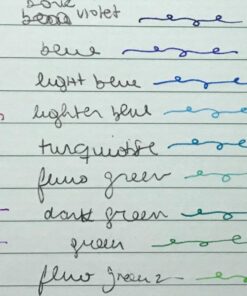 violet
blue
light blue
lighter blue
turquoise
fluo green
dark green
green
fluo green 2